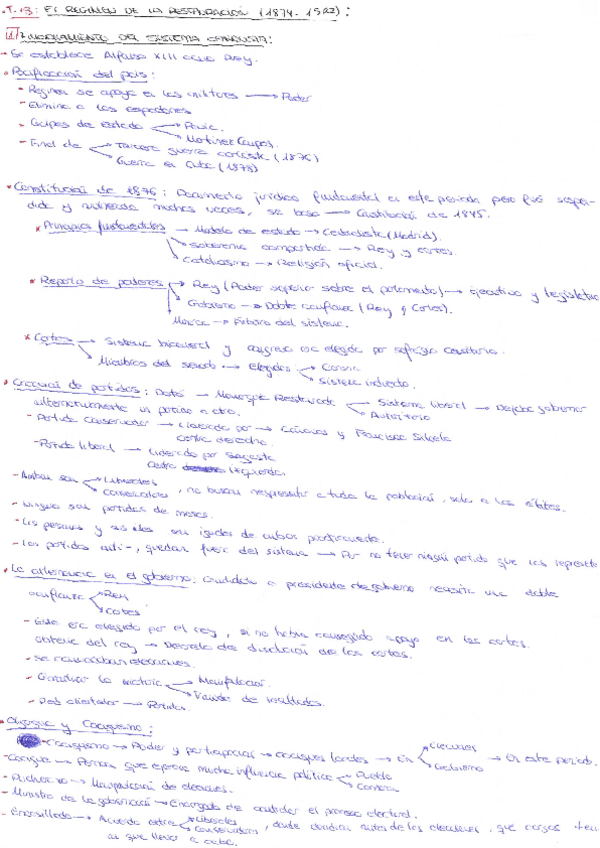 T.13: El RÉGIMEN DE LA RESTAURACIÓN (1874-1923):
1. FUNCIONAMIENTO DEL SISTEMA CANOVISTA:
• Se establece Alfonso XIII como Rey.
• Pacificación del país:
- Régimen se apoya en los militares → Poder
- Elimina a los espadones
- Golpes de estado → Pavía.
→ Martínez Campos.
- Final de → Tercera guerra carlista (1876)
→ Guerra en Cuba (1878)
• Constitución de 1876: Documento jurídico fundamental en este periodo pero fue suspendida y muchas veces, se basa → Constitución de 1845.
* Principios fundamentales → Modelo de estado → Centralista (Madrid).
→ Soberanía compartida → Rey y cortes.
→ Catolicismo → Religión oficial.
* Reparto de poderes → Rey (Poder superior sobre el parlamento) → ejecutivo y legislativo
→ Gobierno → Doble confianza (Rey y Cortes).
→ → del sistema.
* Cortes → Sistema bicameral y congreso era elegido por sufragio censitario.
→ Miembros del senado → elegidos → Corona
→ Sistema indirecto.
• de partidos: → Monarquía Restaurada → Sistema liberal → Dejaba gobernar
alternativamente un partido a otro.
- Partido Conservador → Liderado por → Cánovas y Francisco Silvela
Centro derecha.
- Partido liberal → Liderado por Sagasta
Centro izquierda.
- Ambos son → Liberales
→ Conservadores, no buscan respresentar a toda la población, solo a las élites.
- Ninguno son partidos de masas.
- Las personas y ideales son iguales de ambos prácticamente.
- Los partidos anti-, quedan fuera del sistema → Por no tener ningún partido que les represente
• La alternancia en el gobierno: Candidato a presidente de gobierno necesita una doble
confianza → Rey
→ Cortes
- Este era elegido por el rey, si no había conseguido apoyo en las cortes
obtiene del rey → Decreto de disolución de las cortes.
- Se convocaban elecciones.
- Garantizar la mayoría → Manipulación.
→ de resultados.
- Red clientelar → Partidos.
• y Caciquismo:
- Caciquismo → Poder y participación → caciques locales → En → Elecciones → En este periodo.
→ Gobierno
- Cacique → Persona que ejerce mucha influencia política → Pueblo
→ Comarca
- Pucherazo → Manipulación de elecciones.
- Ministro de la gobernación → Encargado de controlar el proceso electoral.
- Encasillado → Acuerdo entre → Liberales
→ Conservadores, donde antes de las elecciones, que cargos
llevar a cabo.